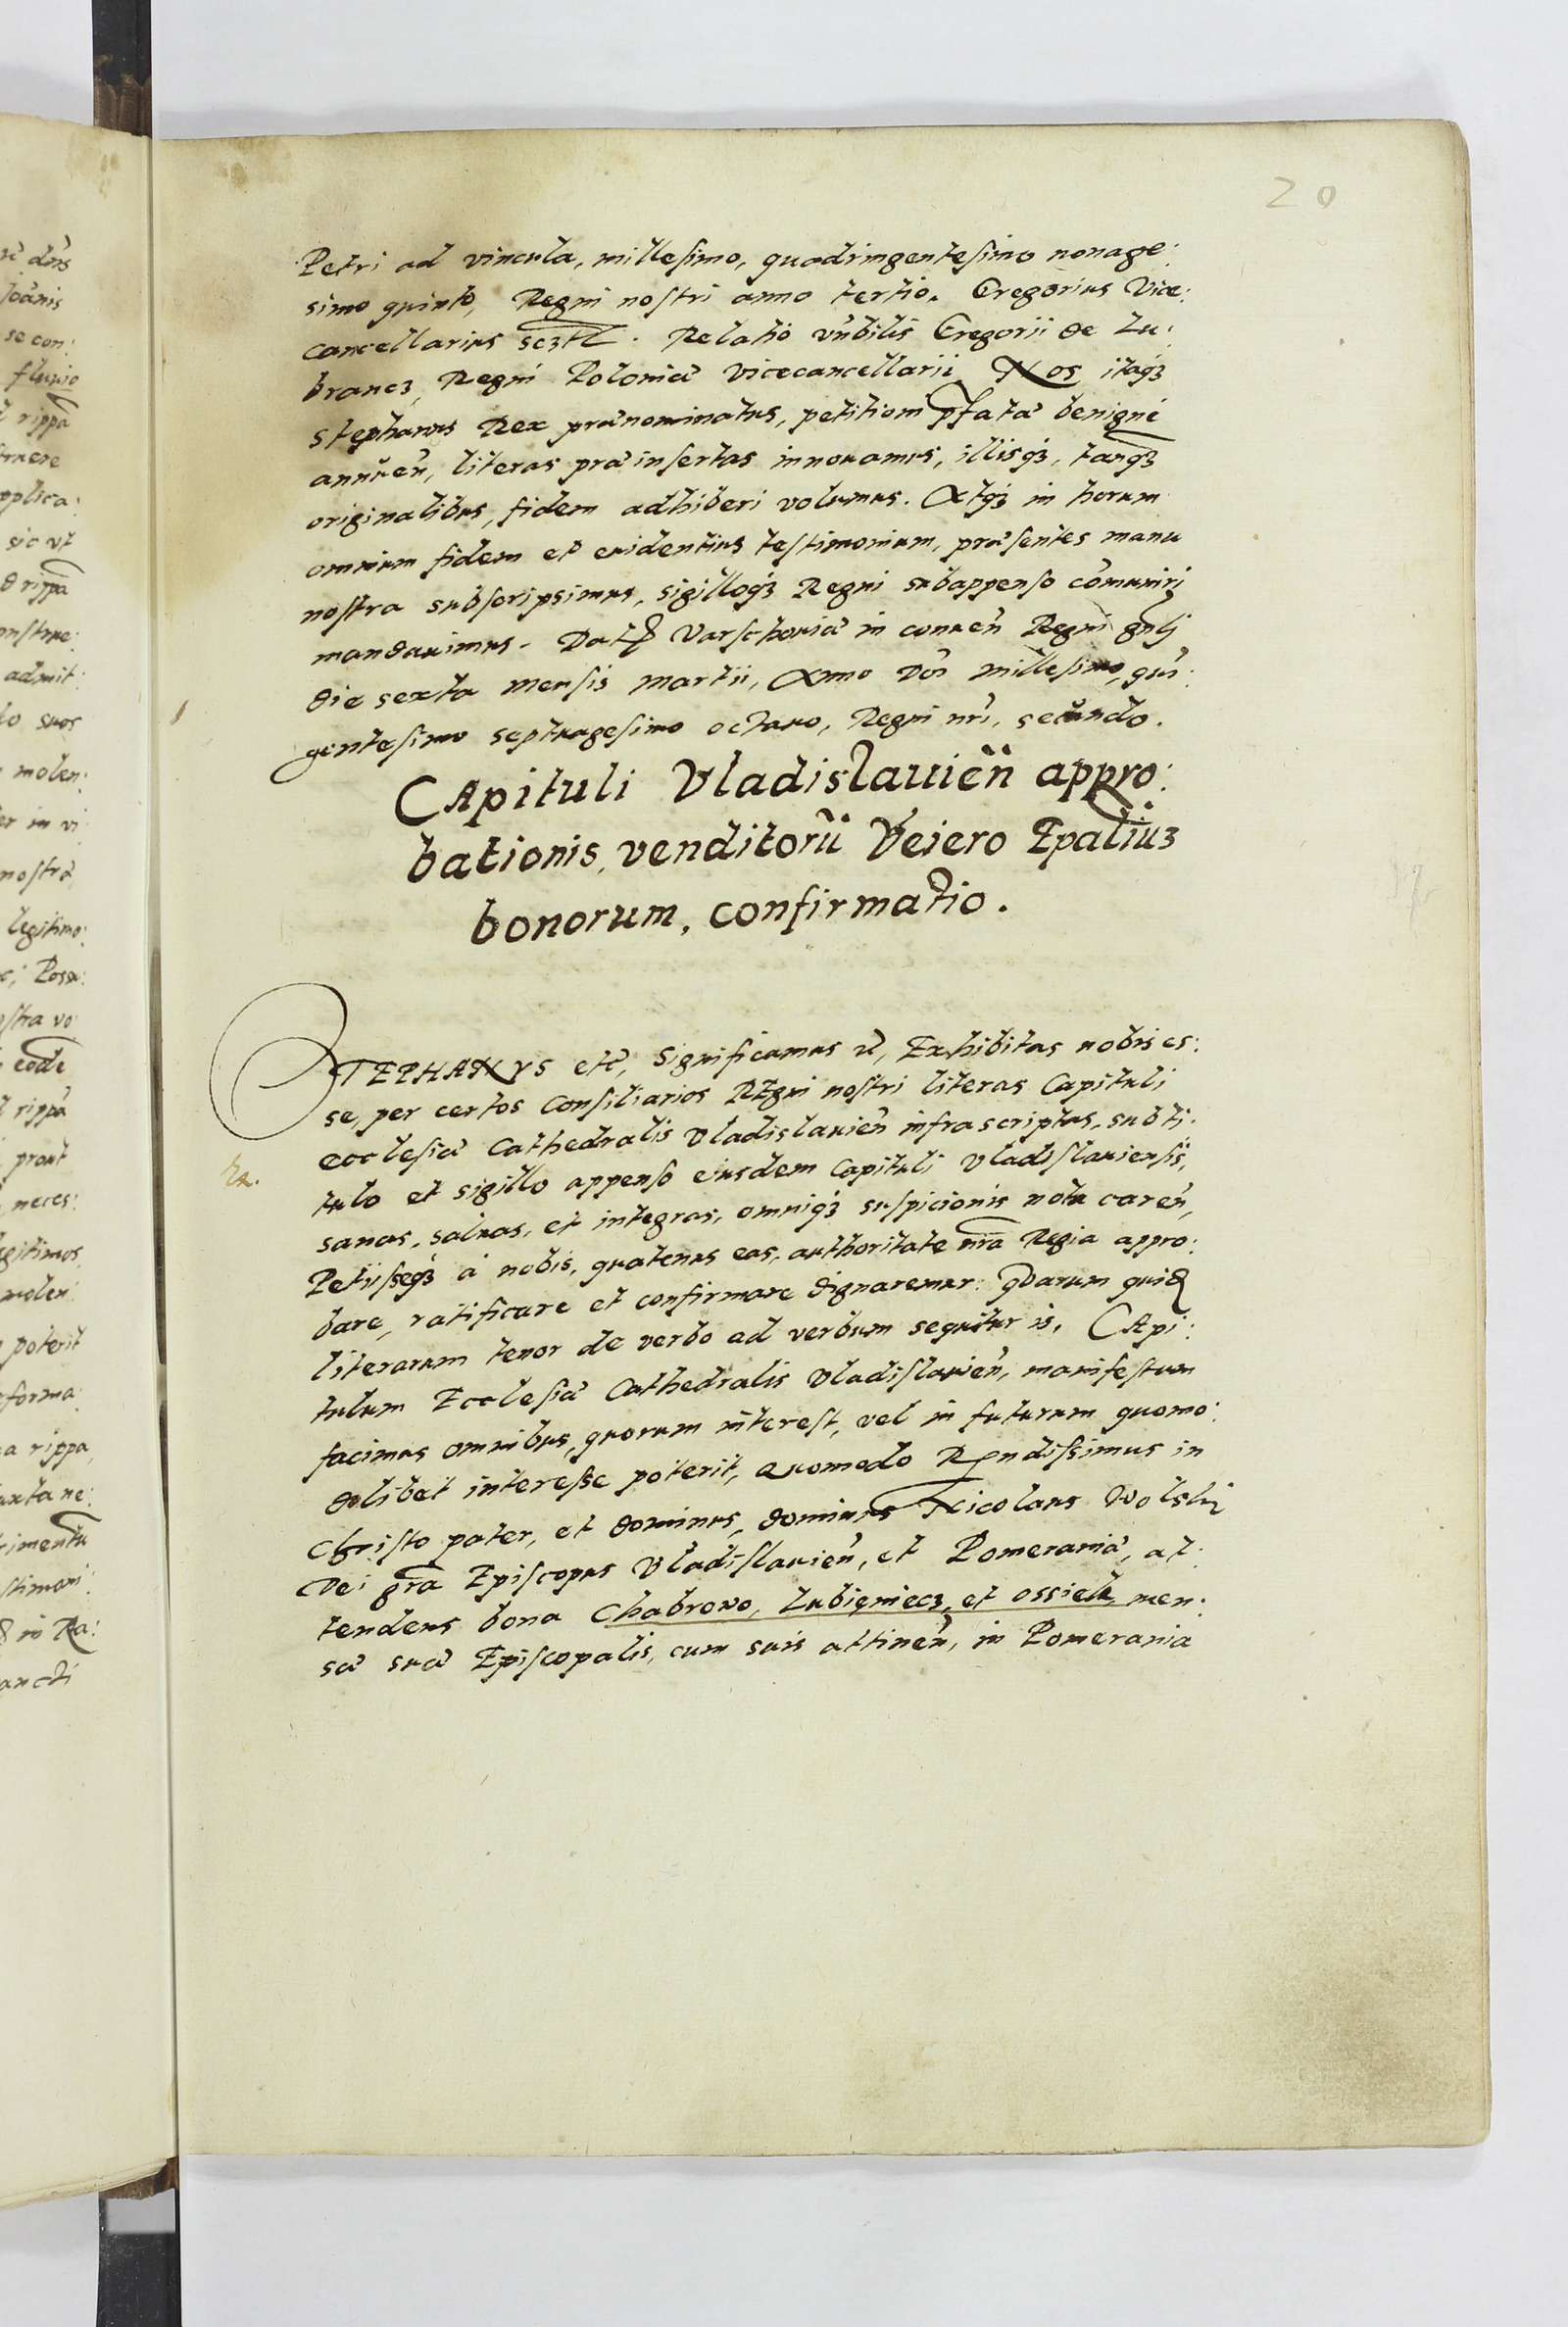 20
Petri ad vincula, millesimo, quadringentesimo nonage:
simo quinto, Regni nostri anno tertio. Gregorius Vice:
cancellarius sczt. Relatio vnbilis Gregorii de Lu:
brancz, Regni Poloniæ Vicecancellarii. Nos itaqz
Stephanus Rex prænominatus, petitiom pfatæ benigne
annuen, literas præinsertas innouamus, illisqz, tanqz
originalibus, fidem adhiberi volumus. Atqz in horum
omnium fidem et euidentius testimonium, præsentes manu
nostra subscripsimus, sigilloqz Regni subappenso comuniri
mandauimus. Dat Varschouiæ in conuen Regni gnli
die sexta mensis Martii, Anno Dni millesimo, quin:
gentesimo septuagesimo octauo, Regni nri, secundo.
CApituli Vladislauien appro:
bationis, venditorū Veiero Epaliuz
bonorum, confirmatio.
STEPHANVS etc, Significamus &c, Exhibitas nobis es:
se, per certos Consiliarios REgni nostri literas Capituli
ecclesiæ Cathedralis Vladislauien infrascriptas, sub ti:
tulo et sigillo appenso eiusdem Capituli Vladislauiensis,
sanas, saluas, et integras, omniqz suspicionis nota caren,
Petiisseqz à nobis, quatenus eas, authoritate nra Regia appro:
bare, ratificare et confirmare dignaremur: quarum quid
literarum tenor de verbo ad verbum sequitur is. CApi:
tulum Ecclesiæ Cathedralis Vladislauien, manifestum
facimus omnibus, quorum interest, vel in futurum quomo:
dolibet interesse poterit, Quomodo Rndissimus in
Christo pater, et dominus, dominus Nicolaus Wolski
Dei gra Episcopus Vladislauien, et Pomeraniæ, at:
tendens bona Chabrowo, Lubięniecz, et Ossiek, men:
sæ suæ Episcopalis, cum suis attinen, in Pomerania